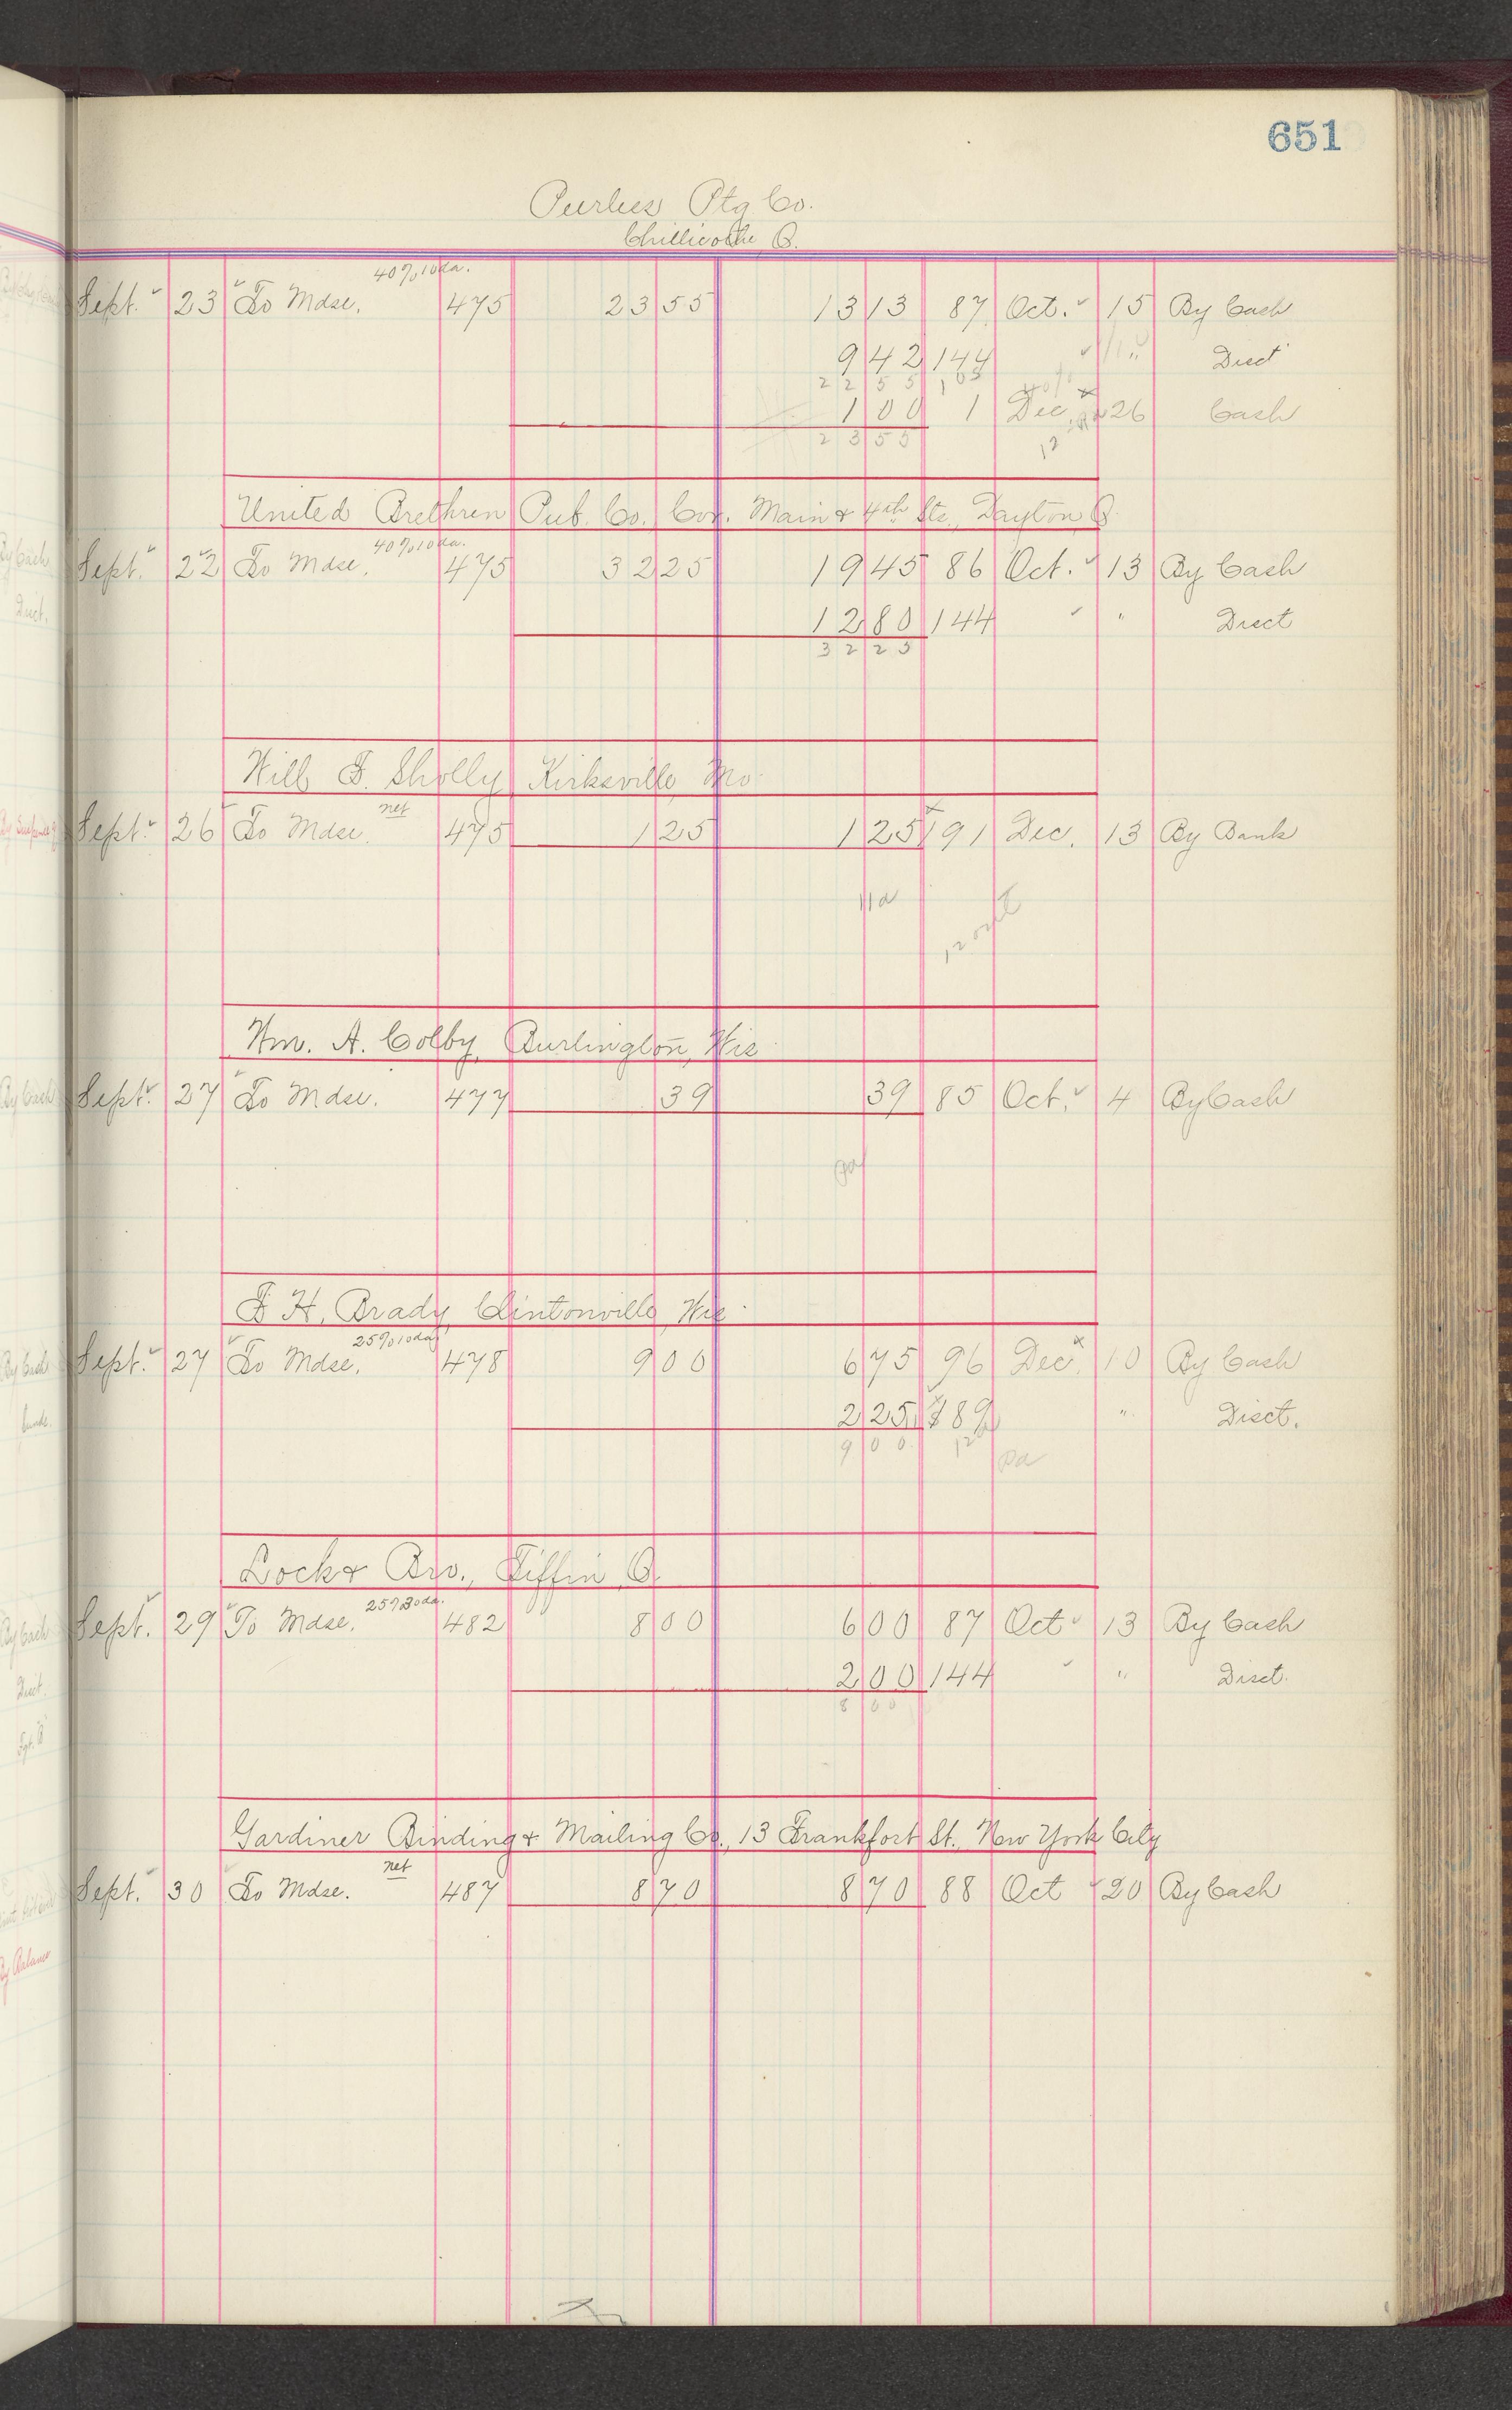 651
Peerless Ptg Co.
Chillicothe O.
40% 10 da.
Sept. 23 To Mdse. 475 23 55 13 13 87 Oct. 15 By Cash
9 42 144 " Disct
22 55 105
1 00 1 Dec. 26 Cash
23 55 12
United Brethren Pub. Co. Cor. Main & 4th Sts., Dayton O.
40% 10 da.
Sept. 22 To Mdse. 475 32 25 19 45 86 Oct. 13 By Cash
12 80 144 " Disct
32 25
Will F. Sholly Kirksville, Mo.
net
Sept. 26 To Mdse. 475 1 25 1 25 191 Dec. 13 By Bank
Wm. A. Colby, Burlington, Wis
Sept. 27 To Mdse. 477 39 39 85 Oct. 4 By Cash
pd
F. H. Brady, Clintonville, Wis.
25% 10 da
Sept. 27 To Mdse. 478 9 00 6 75 96 Dec. 10 By Cash
2 25 189 " Disct.
9 00 12
pd
Lock & Bro., Tiffin, O.
25% 30 da.
Sept. 29 To Mdse. 482 8 00 6 00 87 Oct 13 By Cash
2 00 144 " Disct.
8 00
Gardiner Binding & Mailing Co., 13 Frankfort St., New York City
net
Sept. 30 To Mdse. 487 8 70 8 70 88 Oct 20 By Cash